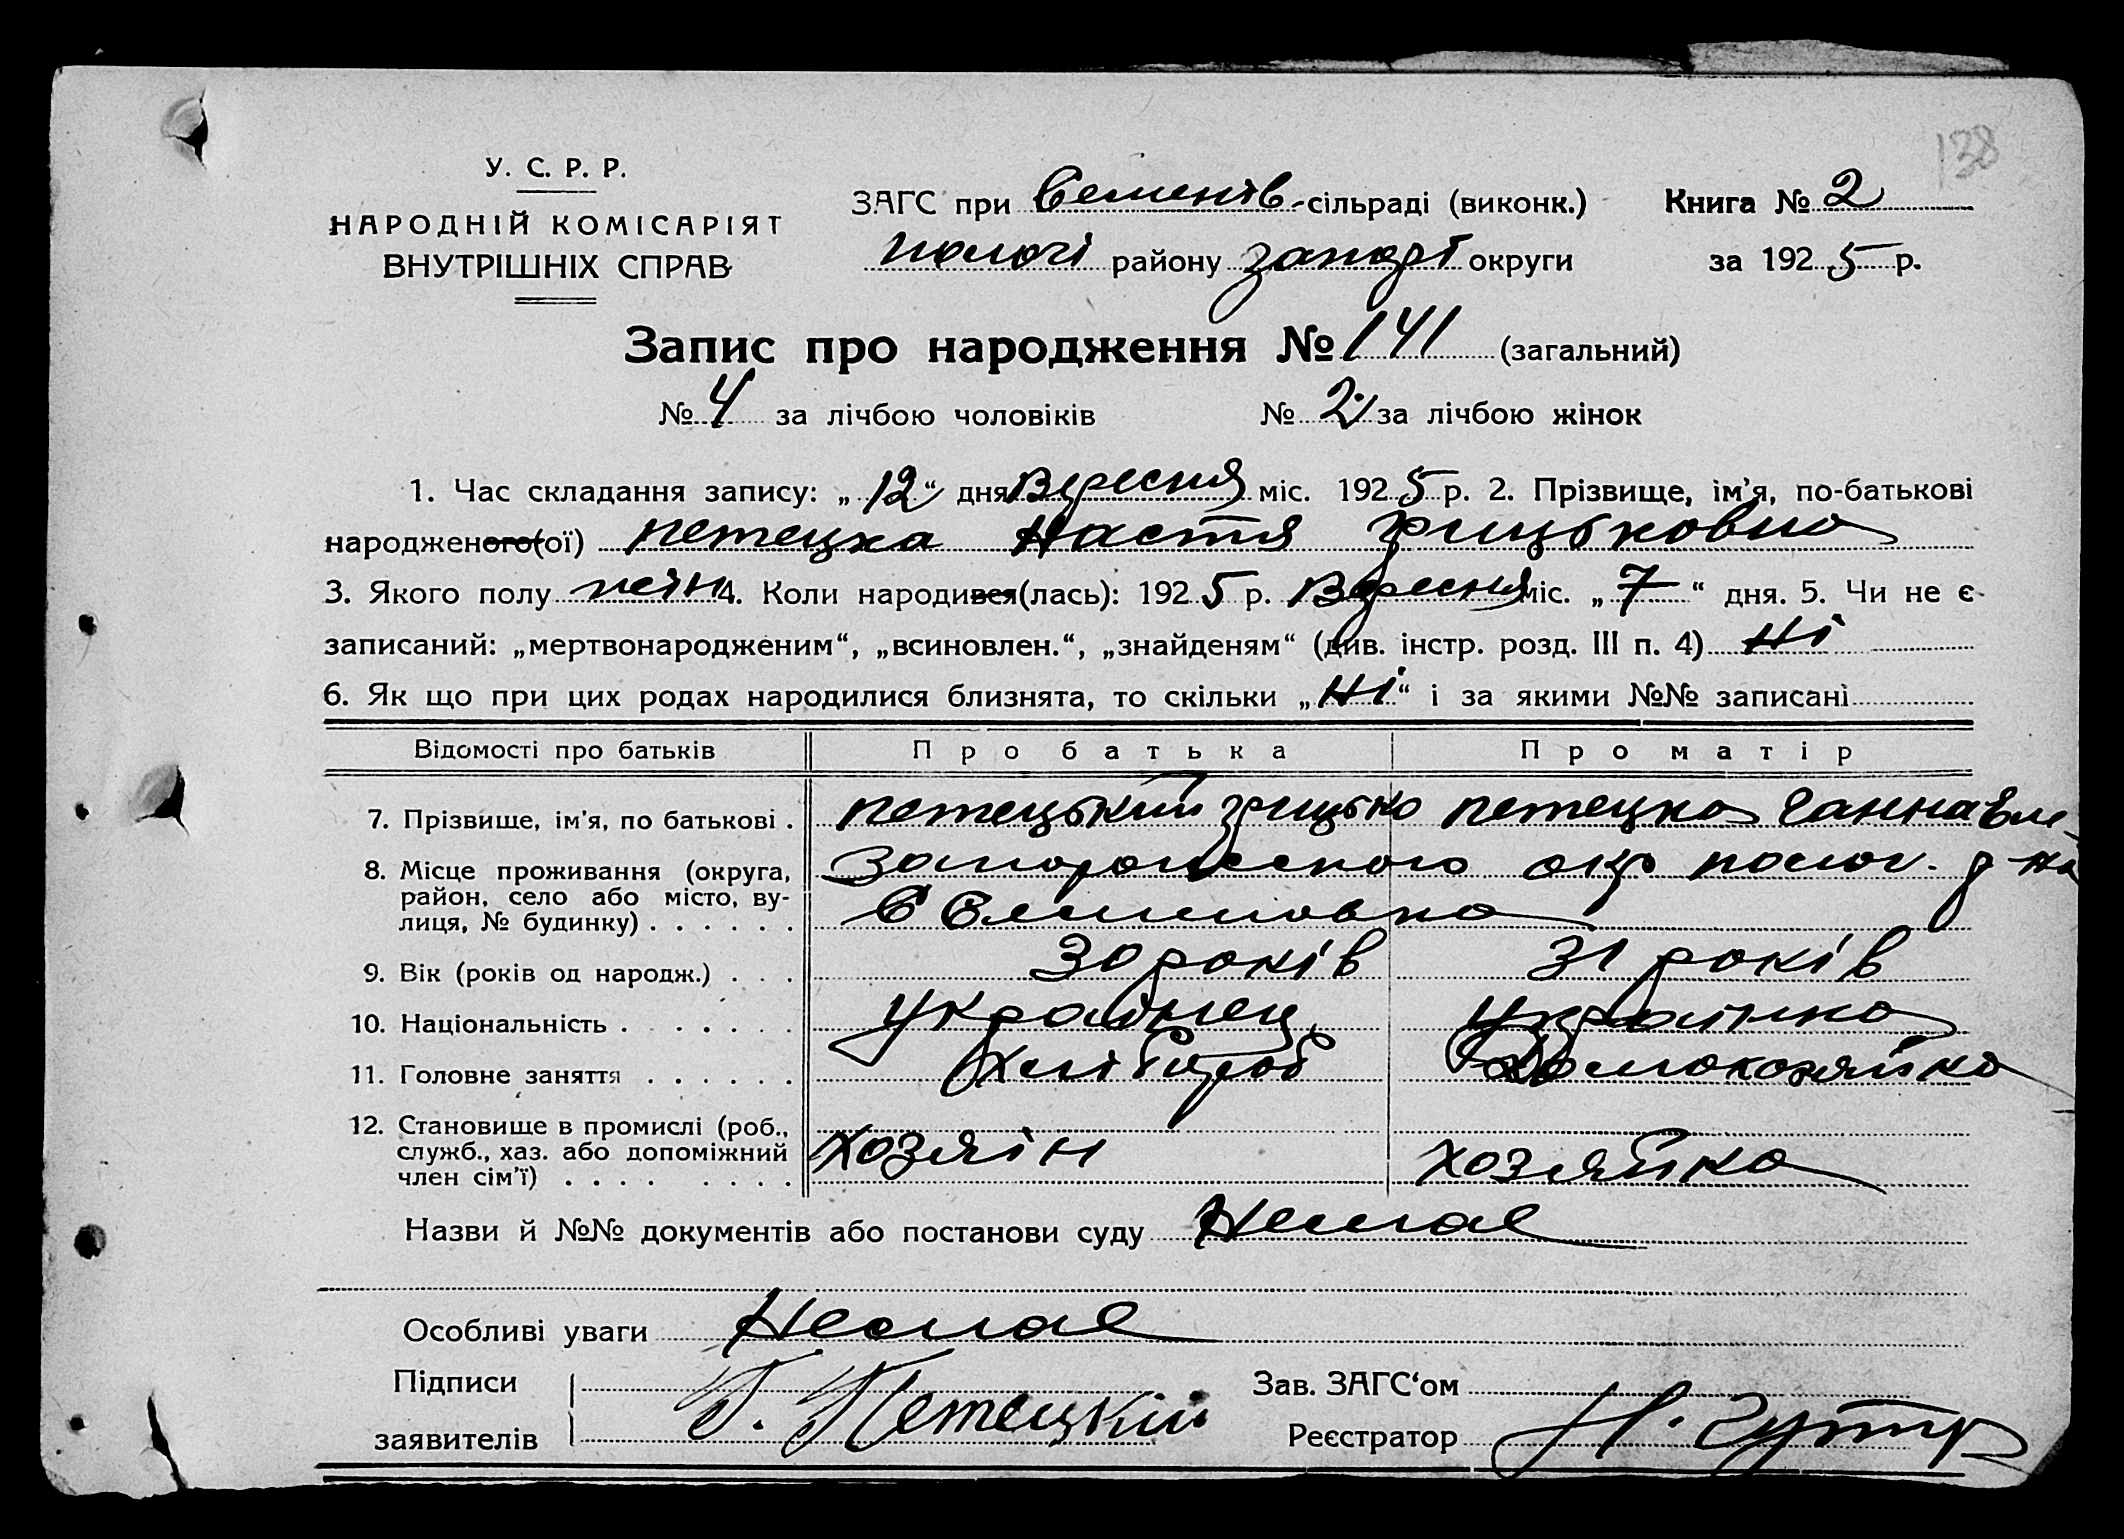 138
У. С. Р. Р.
НАРОДНІЙ КОМІСАРІЯТ
ВНУТРІШНІХ СПРАВ
ЗАГС при Семенів-сільраді (виконк.) Книга № 2
пологі району запорі округи за 1925 р.
Запис про народження № 141 (загальний)
№ 4 за лічбою чоловіків № 2 за лічбою жінок
1. Час складання запису: „12“ дня Вересня міс. 1925 р. 2. Прізвище, ім’я, по-батькові
народженого(ої) петецка Настя грицьковна
3. Якого полу жін 4. Коли народився(лась): 1925 р. Вересня міс. „7“ дня. 5. Чи не є
записаний: „мертвонародженим“, „всиновлен.“, „знайденям“ (див. інстр. розд. III п. 4) Ні
6. Як що при цих родах народилися близнята, то скільки „Ні“ і за якими №№ записані
Відомості про батьків Про батька Про матір
7. Прізвище, ім’я, по батькові . петецький грицько петецка Ганна
8. Місце проживання (округа, Запорожського окр полог. р-на
район, село або місто, ву-
лиця, № будинку) . . . . . . С
9. Вік (років од народж.) . . . 30 років 31 років
10. Національність . . . . . . . українец українка
11. Головне заняття . . . . . . Хлібороб Домохозяйка
12. Становище в промислі (роб.,
служб., хаз. або допоміжний хозяін хозяйка
член сім’ї) . . . . . . . .
Назви й №№ документів або постанови суду Немає
Особливі уваги Немає
Підписи Г. Петецкій Зав. ЗАГС‘ом
заявителів Реєстратор